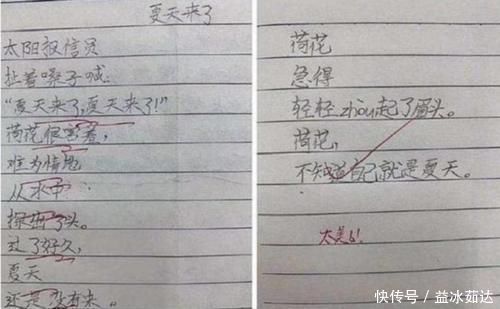 夏天来了
太阳报信员
扯着嗓子喊:
“夏天来了,夏天来了!”
荷花很害羞,
难为情地
从水中
探出了头。
过了好久,
夏天
还是没有来。
荷花
急得
轻轻zhou起了眉头。
荷花,
不知道自己就是夏天。
太美了!
快传号/益冰茹达